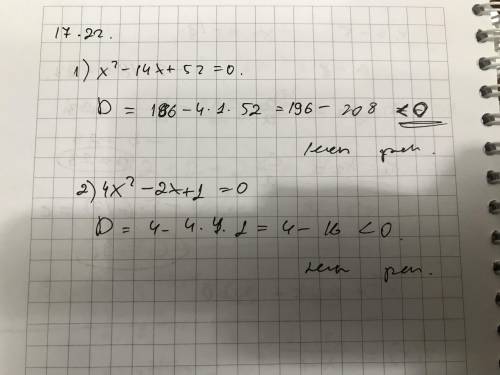 17.22.
1) x² - 14x + 52 = 0.
D = 196 - 4·1·52 = 196 - 208 < 0
нет реш.
2) 4x² - 2x + 1 = 0
D = 4 - 4·4·1 = 4 - 16 < 0.
нет реш.